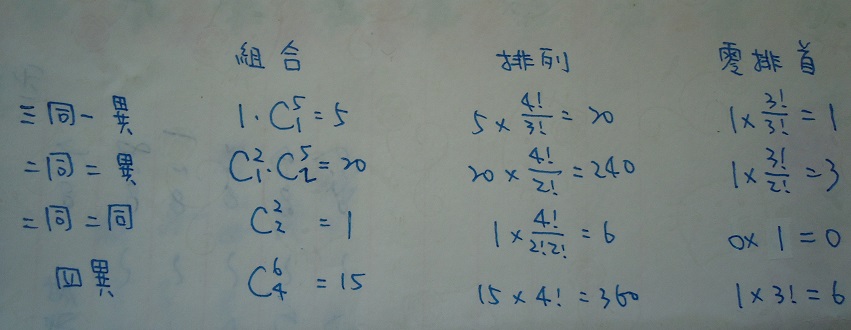 組合 排列 零排首
三同一異 1·C₁⁵=5 5×4!/3!=20 1×3!/3!=1
二同二異 C₁²·C₂⁵=20 20×4!/2!=240 1×3!/2!=3
二同二同 C₂²=1 1×4!/2!2!=6 0×1=0
四異 C₄⁶=15 15×4!=360 1×3!=6